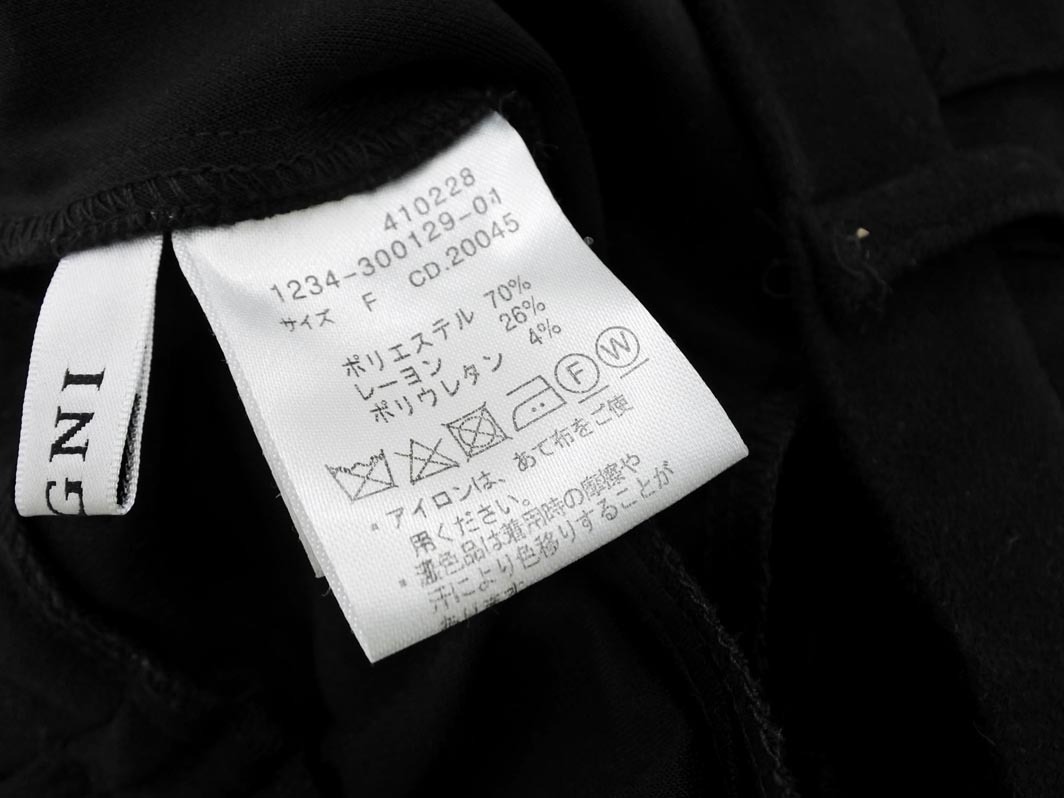 GNI
410228
1234-300129-01
サイズ F CD.20045
ポリエステル 70%
レーヨン 26%
ポリウレタン 4%
F W
・アイロンは、あて布をご使
用ください。
・濃色品は着用時の摩擦や
汗により色移りすることが
あります